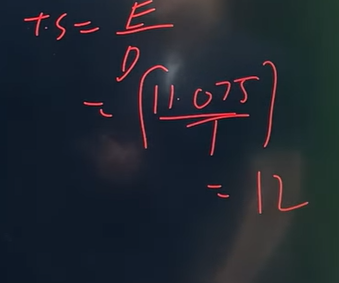 T.S = E/D
= (11.075/1)
= 12